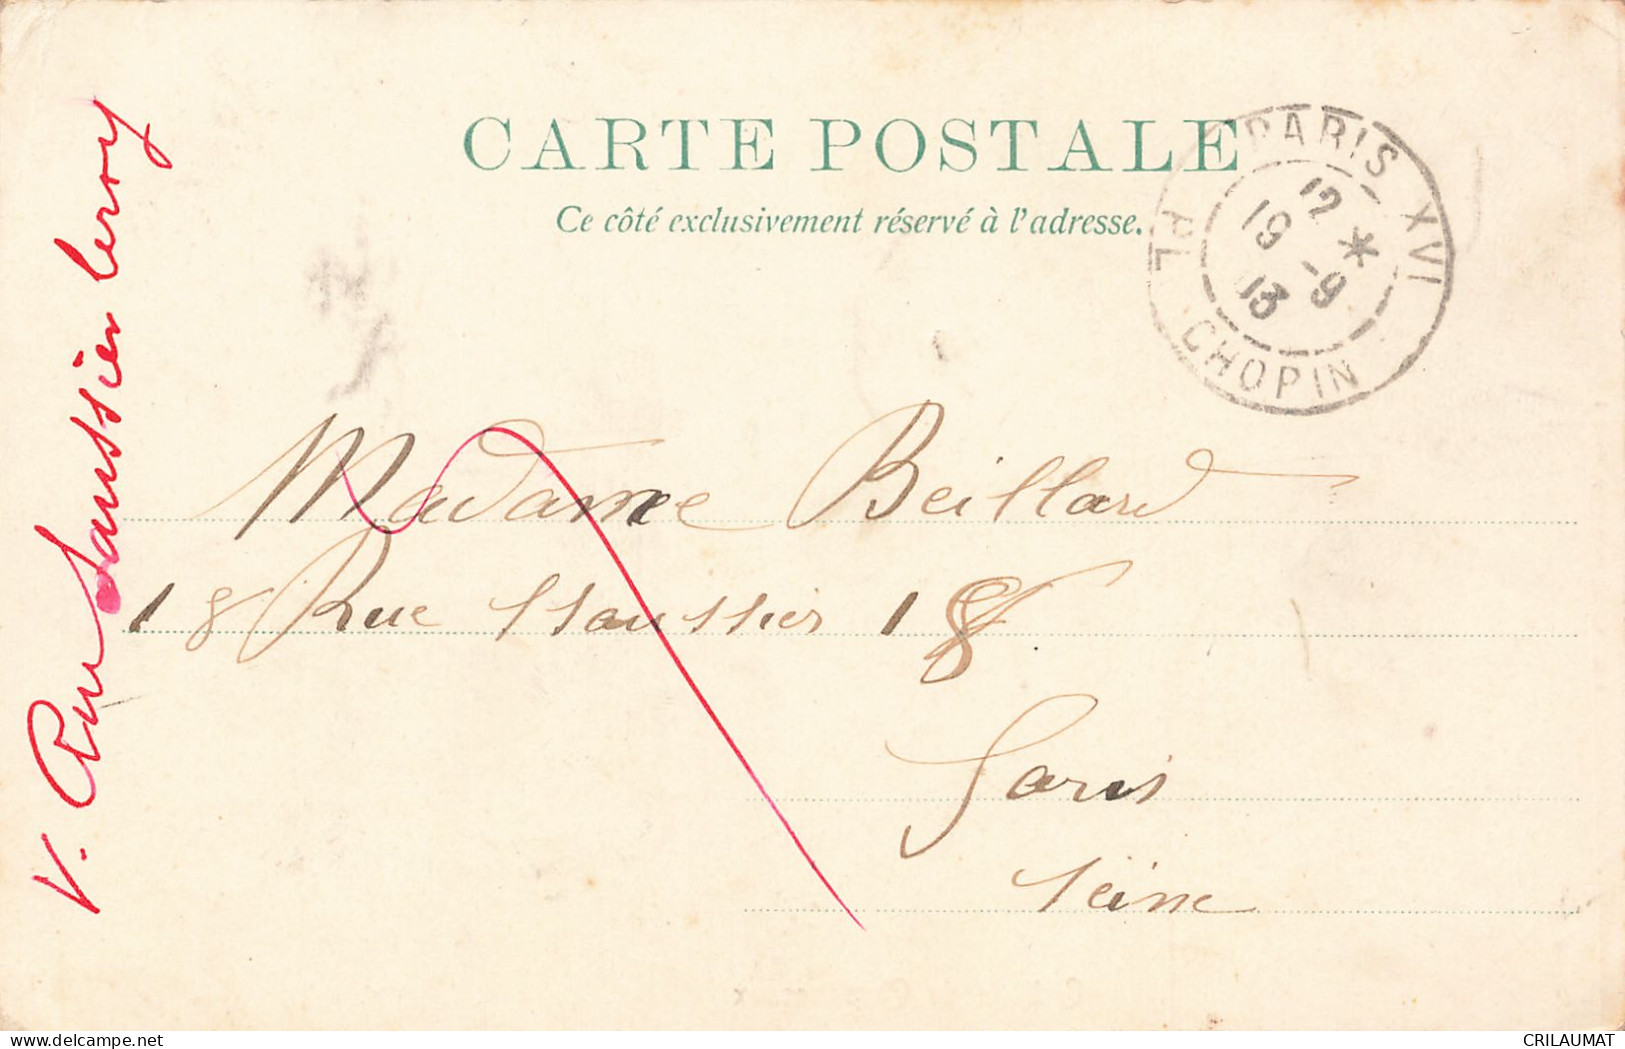 CARTE POSTALE
Ce côté exclusivement réservé à l'adresse.
PARIS XVI
12 *
19 -9
03
PL CHOPIN
Madame Beillard
18 Rue Saussier 18
Paris
Seine
V. Rue Saussier Leroy
CRILAUMAT